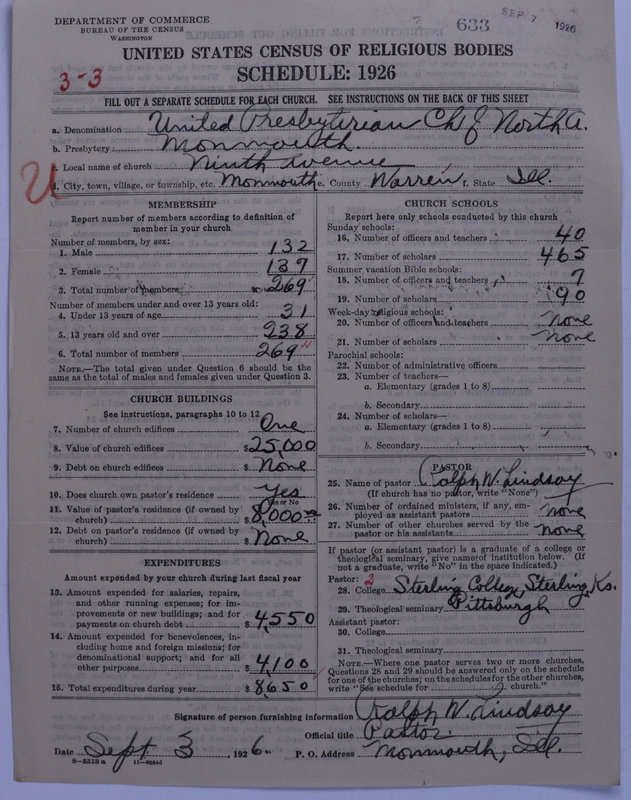 DEPARTMENT OF COMMERCE
BUREAU OF THE CENSUS
WASHINGTON
633
SEP 7 1926
UNITED STATES CENSUS OF RELIGIOUS BODIES
SCHEDULE: 1926
3-3
FILL OUT A SEPARATE SCHEDULE FOR EACH CHURCH. SEE INSTRUCTIONS ON THE BACK OF THIS SHEET
a. Denomination United Presbyterian Ch of North A.
b. Presbytery Monmouth
c. Local name of church Ninth Avenue
d. City, town, village, or township, etc. Monmouth e. County Warren f. State Ill.
U
MEMBERSHIP
Report number of members according to definition of
member in your church
Number of members, by sex:
1. Male 132
2. Female 137
3. Total number of members 269
Number of members under and over 13 years old:
4. Under 13 years of age 31
5. 13 years old and over 238
6. Total number of members 269
NOTE.—The total given under Question 6 should be
same as the total of males and females given under Question 3.
CHURCH BUILDINGS
See instructions, paragraphs 10 to 12
7. Number of church edifices One
8. Value of church edifices $25,000
9. Debt on church edifices $ None
10. Does church own pastor's residence Yes
Yes or No
11. Value of pastor's residence (if owned by
church) $ 8,000
12. Debt on pastor's residence (if owned by
church) $ None
EXPENDITURES
Amount expended by your church during last fiscal year
13. Amount expended for salaries, repairs,
and other running expenses; for im-
provements or new buildings; and for
payments on church debt $ 4,550
14. Amount expended for benevolences, in-
cluding home and foreign missions; for
denominational support; and for all
other purposes $ 4,100
15. Total expenditures during year $ 8650
CHURCH SCHOOLS
Report here only schools conducted by this church
Sunday schools:
16. Number of officers and teachers 40
17. Number of scholars 465
Summer vacation Bible schools:
18. Number of officers and teachers 7
19. Number of scholars 90
Week-day religious schools:
20. Number of officers and teachers None
21. Number of scholars None
Parochial schools:
22. Number of administrative officers
23. Number of teachers—
a. Elementary (grades 1 to 8)
b. Secondary
24. Number of scholars—
a. Elementary (grades 1 to 8)
b. Secondary
PASTOR
25. Name of pastor Ralph W. Lindsay
(If church has no pastor, write "None")
26. Number of ordained ministers, if any, em-
ployed as assistant pastors None
27. Number of other churches served by the
pastor or his assistants None
If pastor (or assistant pastor) is a graduate of a college or
theological seminary, give name of institution below. (If
not a graduate, write "No" in the space indicated.)
Pastor: 2
28. College Sterling College, Sterling, Ks.
29. Theological seminary Pittsburgh
Assistant pastor:
30. College
31. Theological seminary
NOTE.—Where one pastor serves two or more churches,
Questions 28 and 29 should be answered only on the schedule
for one of the churches; on the schedules for the other churches,
write "See schedule for church."
Signature of person furnishing information Ralph W. Lindsay
Official title Pastor
Date Sept 3, 1926 P. O. Address Monmouth, Ill.
8—5518 a